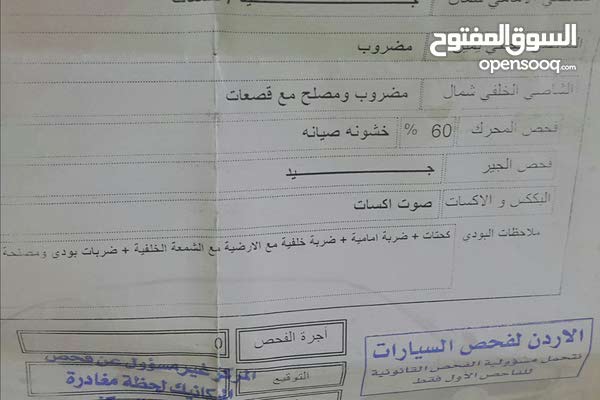 السوق المفتوح
opensooq.com
مضروب
الشاصي الخلفي شمال مضروب ومصلح مع قصعات
فحص المحرك 60 % خشونه صيانه
فحص الجير جـــــــــــــيد
البككس و الاكسات صوت اكسات
ملاحظات البودي كحتات + ضربة امامية + ضربة خلفية مع الارضية مع الشمعة الخلفية + ضربات بودي ومصلحة
أجرة الفحص 0
التوقيع
المركز غير مسؤول عن فحص
الميكانيك لحظة مغادرة
الاردن لفحص السيارات
نتحمل مسؤولية الفحص القانونية
للفاحص الأول فقط